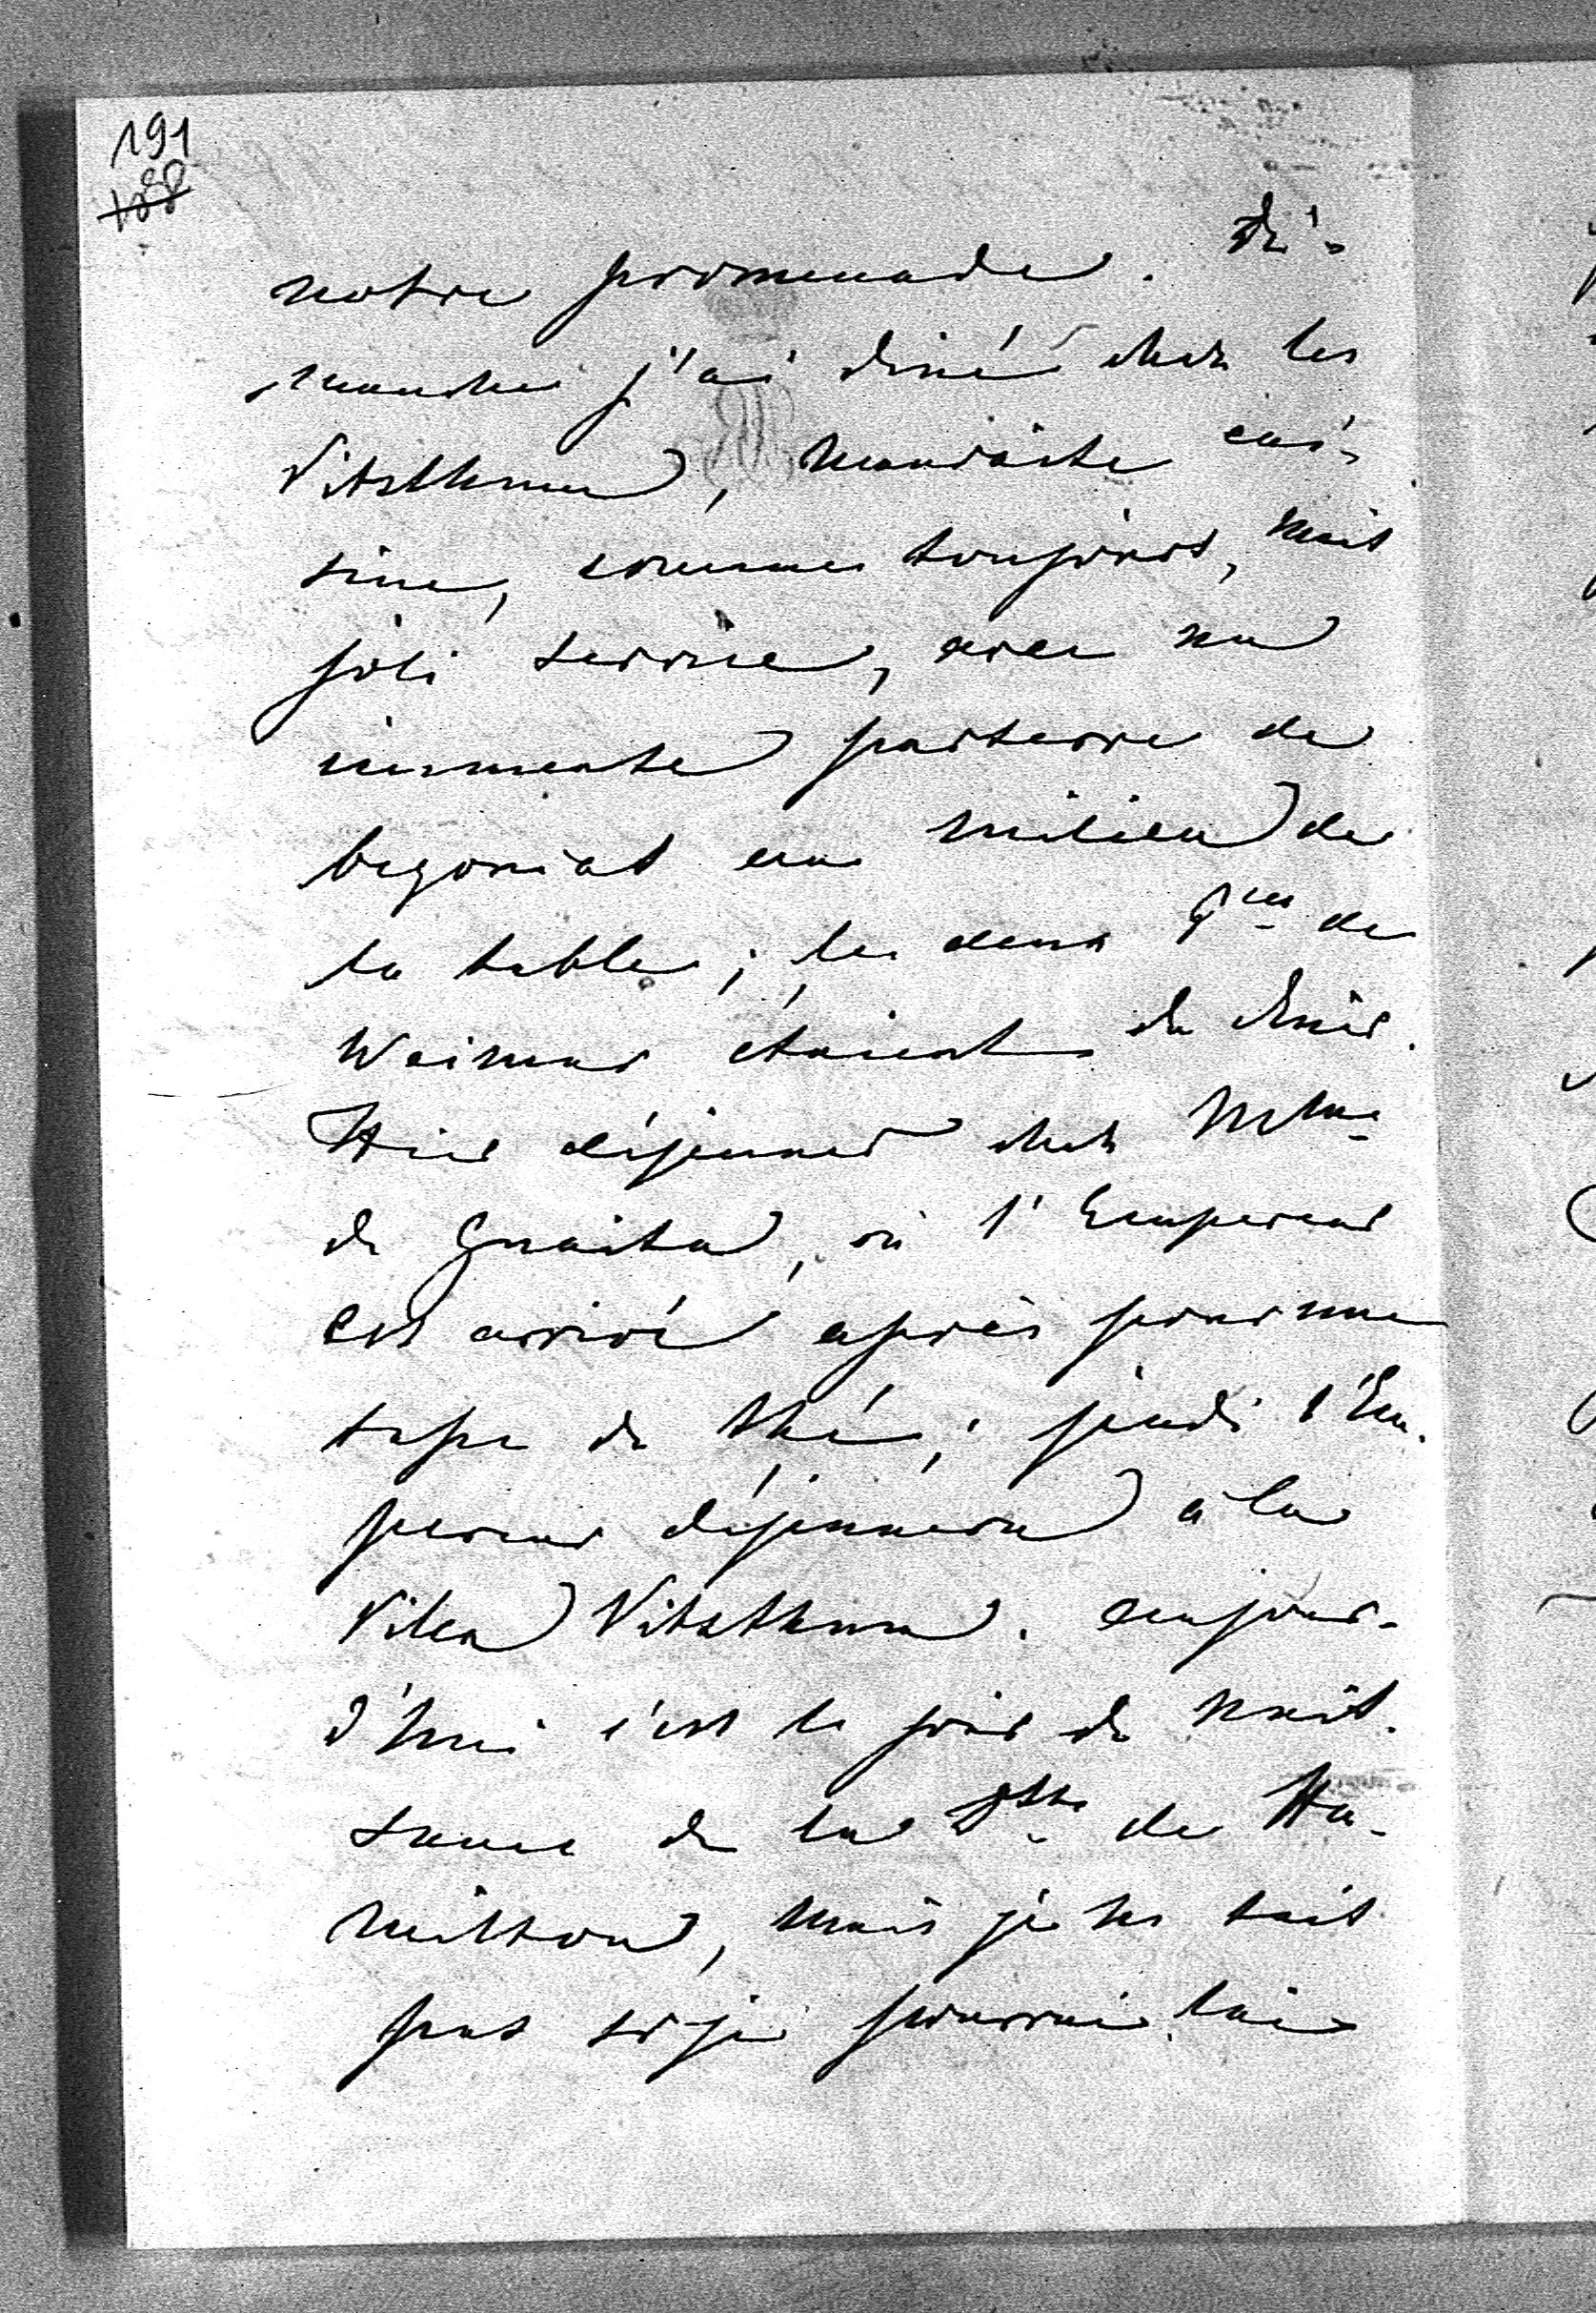 191
188
notre promenade. Di-
manche j'ai diné chez les
Vitzthum, mauvaise cui-
sine, comme toujours, mais
joli service, avec un
immense parterre de
begonias au milieu de
la table; les deux Pces de
Weimar étaient du diner.
Hier déjeuner chez Mme
de Guaita, où l'Empereur
est arrivé après pour une
tasse de thé; jeudi l'Em-
pereur déjeunera à la
Villa Vitzthum. aujour-
d'hui c'est le jour de nais-
sance de la Dsse de Ha-
milton, mais je ne sais
pas si je pourrai lui